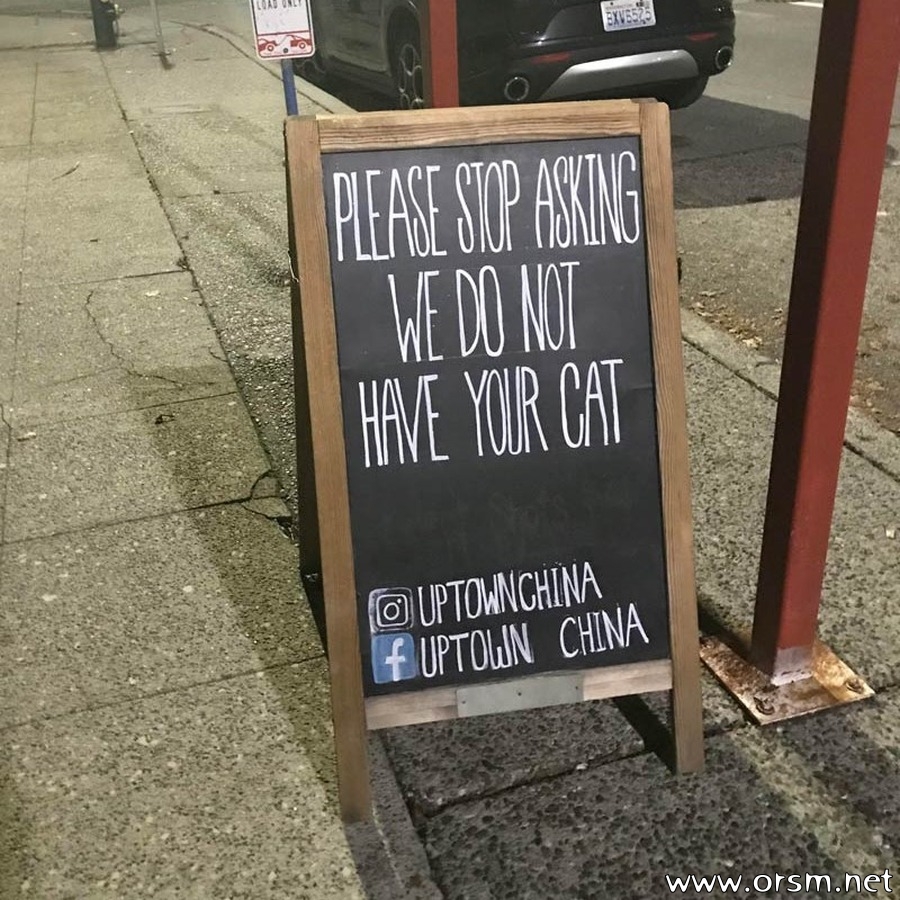 LOAD ONLY
PLEASE STOP ASKING
WE DO NOT
HAVE YOUR CAT
UPTOWNCHINA
UPTOWN CHINA
www.orsm.net